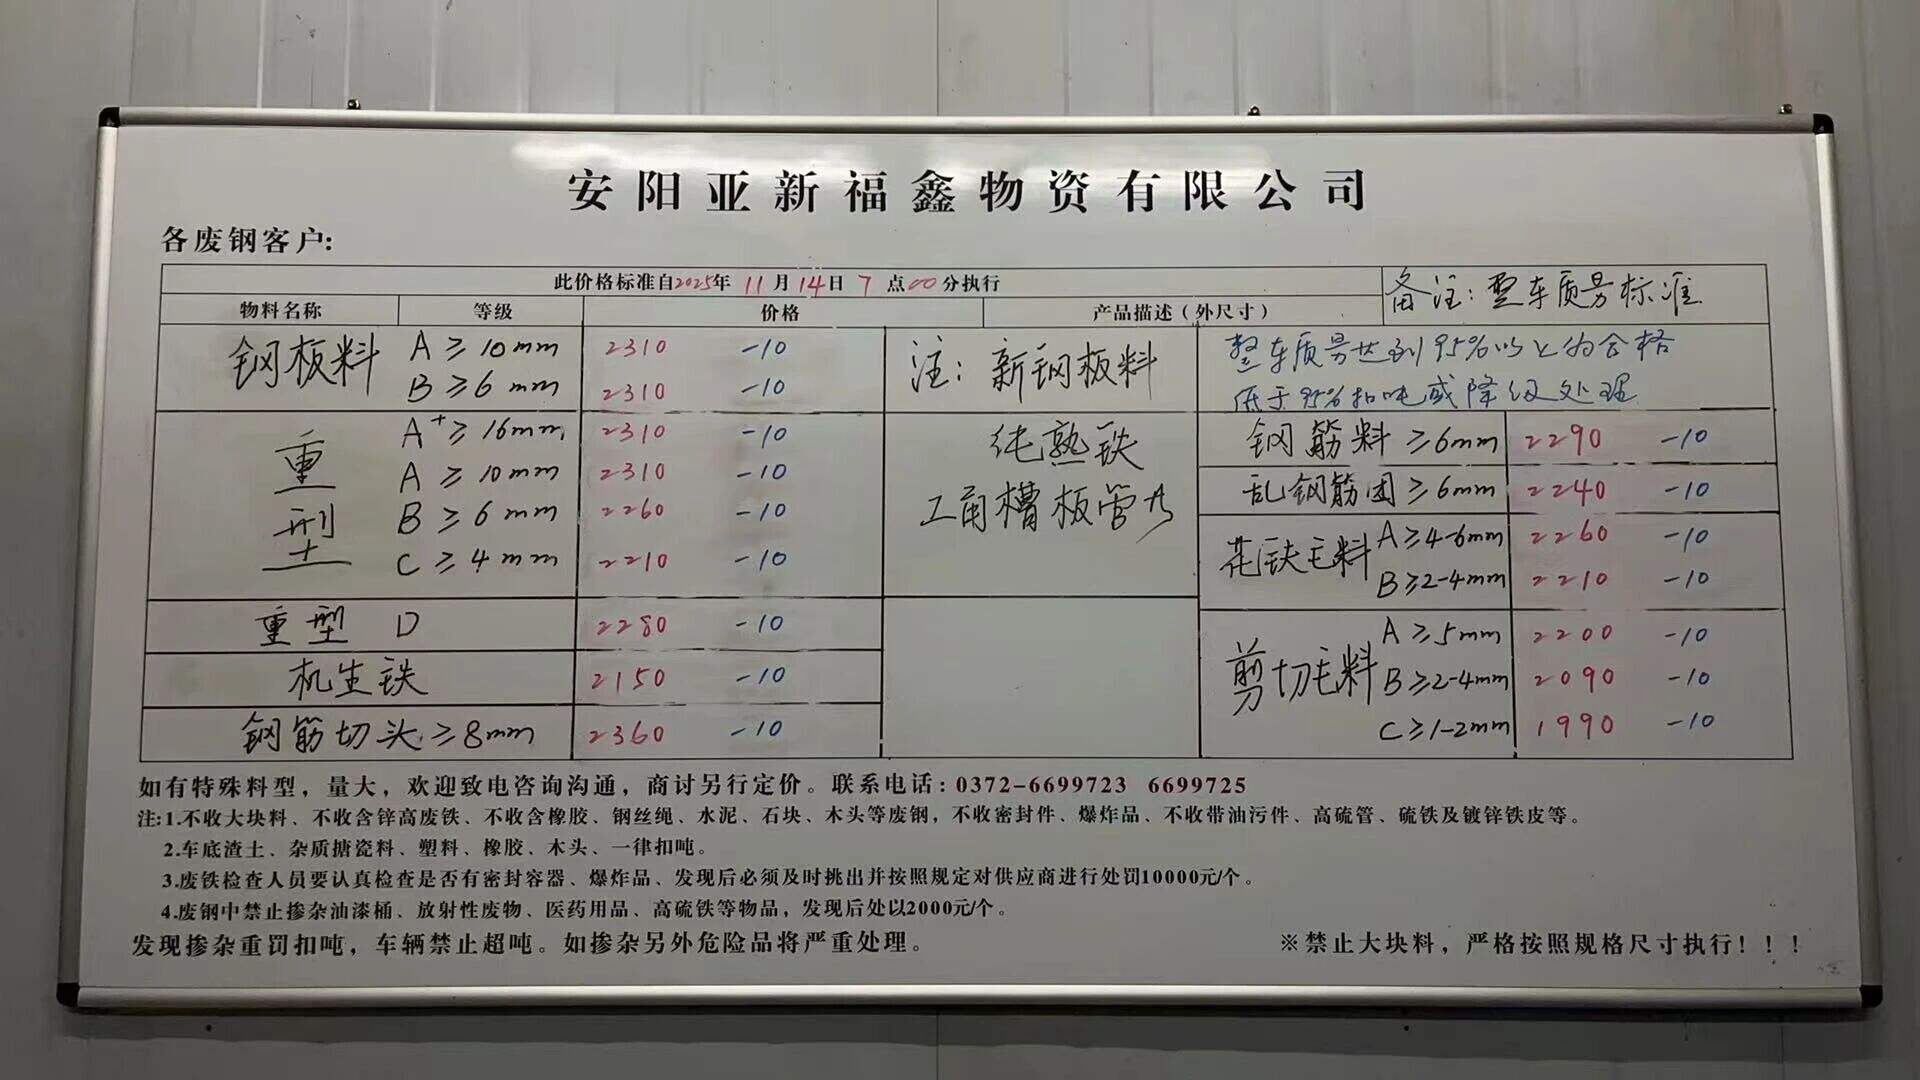 安阳亚新福鑫物资有限公司
各废钢客户:
此价格标准自2025年 11月14日 7点00分执行
备注:整车质量标准
物料名称 等级 价格 产品描述(外尺寸)
钢板料 A≥10mm 2310 -10
B≥6mm 2310 -10
注:新钢板料
整车质量达到95%以上为合格
低于95%扣吨或降级处理
重型 A+≥16mm 2310 -10
A≥10mm 2310 -10
B≥6mm 2260 -10
C≥4mm 2210 -10
纯熟铁
工角槽板管
重型 D 2280 -10
机生铁 2150 -10
钢筋切头≥8mm 2360 -10
钢筋料≥6mm 2290 -10
乱钢筋团≥6mm 2240 -10
花铁毛料 A≥4-6mm 2260 -10
B≥2-4mm 2210 -10
剪切毛料 A≥5mm 2200 -10
B≥2-4mm 2090 -10
C≥1-2mm 1990 -10
如有特殊料型,量大,欢迎致电咨询沟通,商讨另行定价。联系电话:0372-6699723 6699725
注:1.不收大块料、不收含锌高废铁、不收含橡胶、钢丝绳、水泥、石块、木头等废钢,不收密封件、爆炸品、不收带油污件、高硫管、硫铁及镀锌铁皮等。
2.车底渣土、杂质搪瓷料、塑料、橡胶、木头、一律扣吨。
3.废铁检查人员要认真检查是否有密封容器、爆炸品、发现后必须及时挑出并按照规定对供应商进行处罚10000元/个。
4.废钢中禁止掺杂油漆桶、放射性废物、医药用品、高硫铁等物品,发现后处以2000元/个。
发现掺杂重罚扣吨,车辆禁止超吨。如掺杂另外危险品将严重处理。
※禁止大块料,严格按照规格尺寸执行!!!